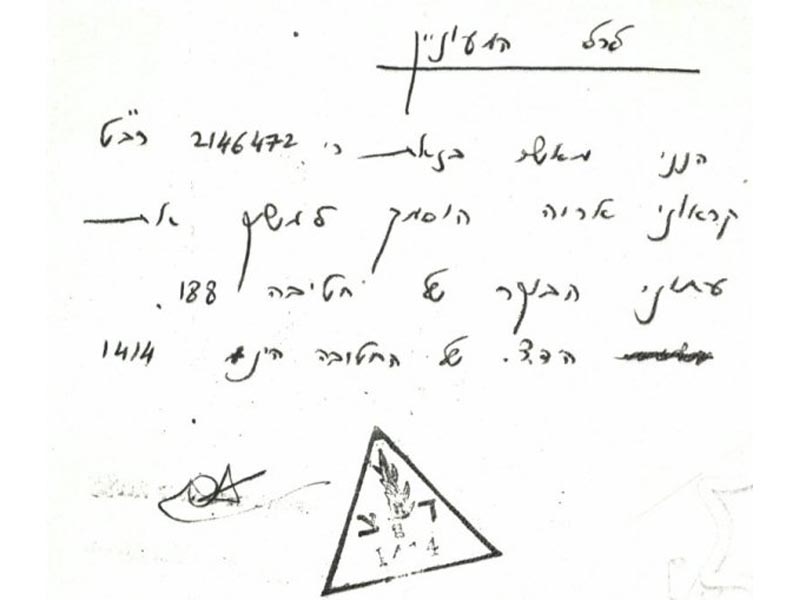 לכל המעוניין
הנני מאשר בזאת כי 2146472 רב"ט
קראוני אריה הוסמך למשוך את
עתוני הבוקר של חטיבה 188.
ה.ד.צ. של החטיבה הינו 1414
ד צ
1414